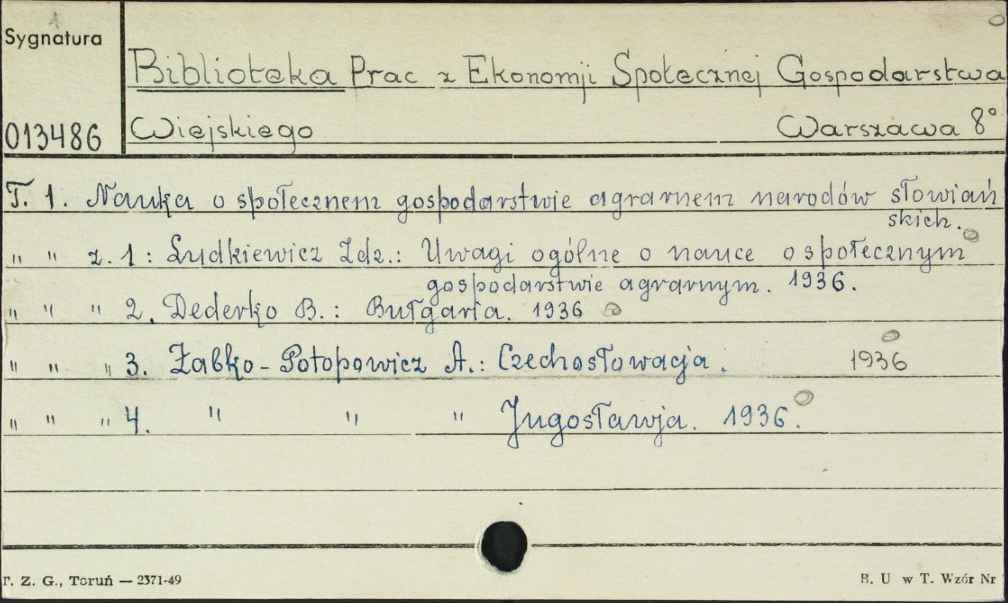 Sygnatura
Biblioteka Prac z Ekonomji Społecznej Gospodarstwa
013486 Wiejskiego Warszawa 8°
T. 1. Nauka o społecznem gospodarstwie agrarnem narodów słowiań
skich.
" " z. 1: Ludkiewicz Zdz.: Uwagi ogólne o nauce o społecznym
gospodarstwie agrarnym. 1936.
" " " 2. Dederko B.: Bułgaria. 1936
" " " 3. Żabko-Potopowicz A.: Czechosłowacja. 1936
" " " 4. " " " Jugosławja. 1936.
P. Z. G., Toruń — 2371-49
B. U w T. Wzór Nr